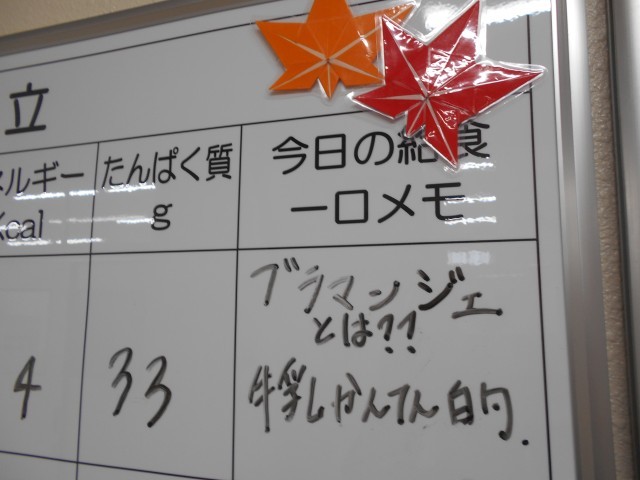 立
ネルギー
Kcal
たんぱく質
g
今日の給食
一口メモ
4
33
ブラマンジェ
とは??
牛乳かんてん的.